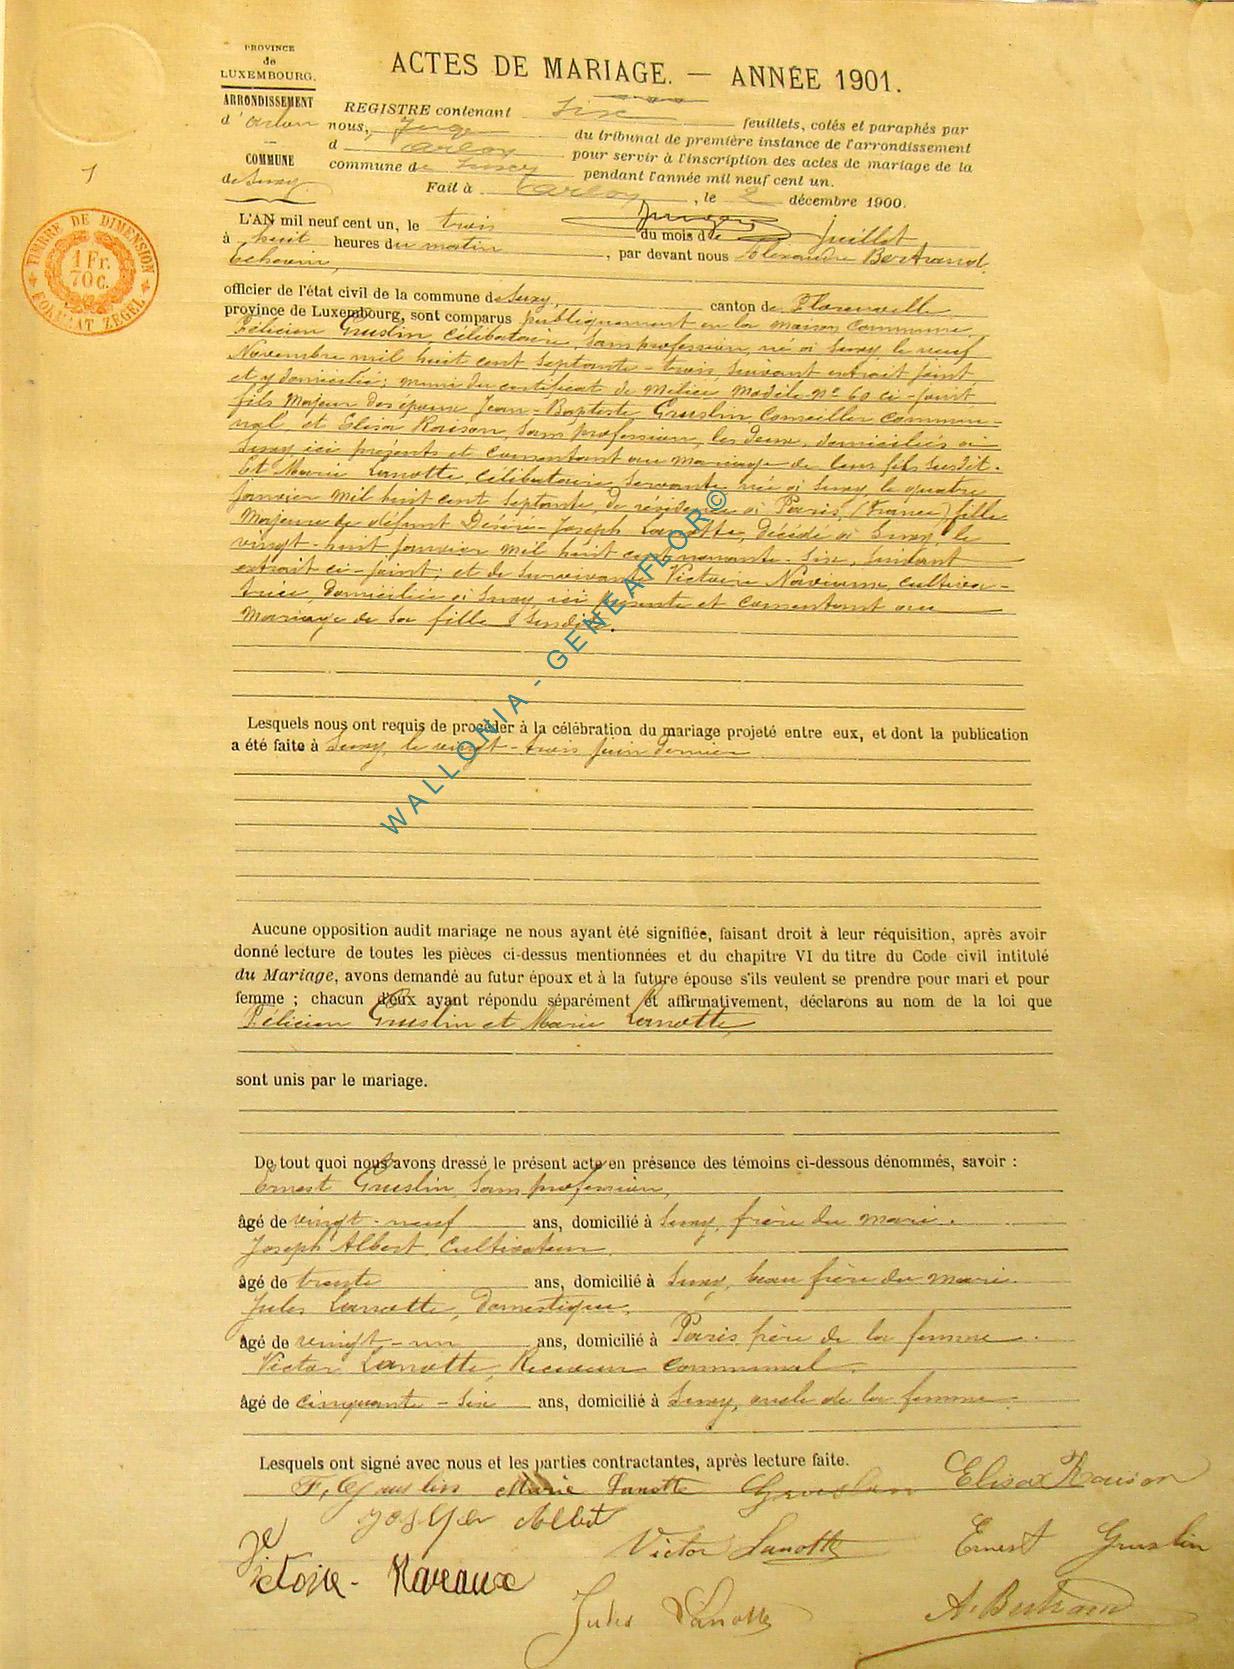 PROVINCE
de
LUXEMBOURG.
ARRONDISSEMENT
d'Arlon
COMMUNE
de Suxy.
1
TIMBRE DE DIMENSION
1 Fr.
70 C.
FORMAAT ZEGEL
ACTES DE MARIAGE. — ANNÉE 1901.
REGISTRE contenant six feuillets, cotés et paraphés par
nous, Juge du tribunal de première instance de l'arrondissement
d'Arlon pour servir à l'inscription des actes de mariage de la
commune de Suxy pendant l'année mil neuf cent un.
Fait à Arlon, le 2 décembre 1900.
L'AN mil neuf cent un, le trois du mois de Juillet
à huit heures du matin, par devant nous Alexandre Bertrand,
Echevin,
officier de l'état civil de la commune de Suxy, canton de Florenville
province de Luxembourg, sont comparus publiquement en la maison commune
Félicien Gruslin, célibataire, sans profession, né à Suxy, le neuf
Novembre mil huit cent septante-trois, suivant extrait joint
et y domicilié; muni du certificat de Milice modèle nº 60 ci-joint,
fils Majeur des époux Jean-Baptiste Gruslin Conseiller commu-
nal et Elisa Rouson, sans profession, les deux domiciliés à
Suxy, ici présents et consentant au mariage de leur fils susdit.
Et Marie Lanotte, célibataire, servante née à Suxy, le quatre
Janvier mil huit cent septante, de résidence à Paris (France) fille
Majeure de défunt Désiré-Joseph Lanotte, décédé à Suxy, le
vingt-huit Janvier mil huit cent nonante-six, suivant
extrait ci-joint; et de survivante Victoire Naviaux, cultiva-
trice, domiciliée à Suxy, ici présente et consentant au
mariage de sa fille susdite.
WALLONIA - GENEAFLOR©
Lesquels nous ont requis de procéder à la célébration du mariage projeté entre eux, et dont la publication
a été faite à Suxy, le vingt-trois Juin dernier
Aucune opposition audit mariage ne nous ayant été signifiée, faisant droit à leur réquisition, après avoir
donné lecture de toutes les pièces ci-dessus mentionnées et du chapitre VI du titre du Code civil intitulé
du Mariage, avons demandé au futur époux et à la future épouse s'ils veulent se prendre pour mari et pour
femme ; chacun d'eux ayant répondu séparément et affirmativement, déclarons au nom de la loi que
Félicien Gruslin et Marie Lanotte,
sont unis par le mariage.
De tout quoi nous avons dressé le présent acte en présence des témoins ci-dessous dénommés, savoir :
Ernest Gruslin, sans profession,
âgé de vingt-neuf ans, domicilié à Suxy, frère du mari.
Joseph Albert, Cultivateur,
âgé de trente ans, domicilié à Suxy, beau frère du mari.
Jules Lanotte, Domestique,
âgé de vingt-un ans, domicilié à Paris frère de la femme.
Victor Lanotte, Receveur communal.
âgé de cinquante-six ans, domicilié à Suxy, oncle de la femme.
Lesquels ont signé avec nous et les parties contractantes, après lecture faite.
F. Gruslin Marie Lanotte Gruslin Elisa Rouson
Joseph Albert
Victor Lanotte Ernest Gruslin
Victoire-Naveaux
Jules Lanotte A. Bertrand